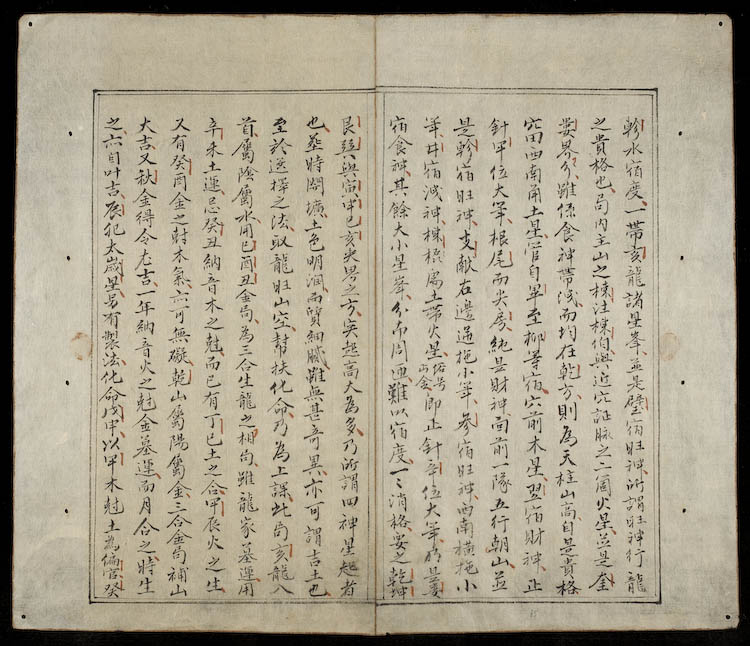 軫水宿度、一帶亥龍諸星峯、並是壁宿旺神、所謂旺神行龍
之貴格也、局內主山之棟注棟伯與近穴証脉之二箇火星並是奎
婁界分、雖係食神帶洩、而均在乾方、則爲天柱山高、自是貴格
穴西南角土星管自畢至柳等宿、穴前木星翌宿財神、正
針甲位大筆、根尾而尖房、純是財神、面前一隊五行朝山並
是軫宿旺神、支献右邊逶拖小筆、參宿旺神、西南橫拖小
筆、井宿洩神、棟標屬土帶火星、即止針辛位大筆
宿食神、其餘大小星峯、分布周匝、難以宿度一々消格、要之乾坤
艮巽與寅申巳亥尖界之方、突起高大爲多、乃所謂四神星起者
也、葬時開壙、土色明潤、而質細膩、雖無甚奇異、亦可謂吉土也
至於選擇之法、取龍旺山空、幫扶化命、乃爲上課、此局亥龍入
首、屬陰屬水、用巳酉丑金局、爲三合生龍之相局、雖龍家墓運用
辛未土運、忌癸丑納音木之尅、而已有丁巳土之合、甲辰火之生
又有癸酉金之尅、木氣亦可無礙、乾山屬陽屬金、三合金局補山
大吉、又秋金得令尤吉、一年納音火之尅金墓運、而月合之、時生
之、亦自叶吉、辰犯太歲星、另有製法、化命戊申、以甲木尅土爲偏官、癸